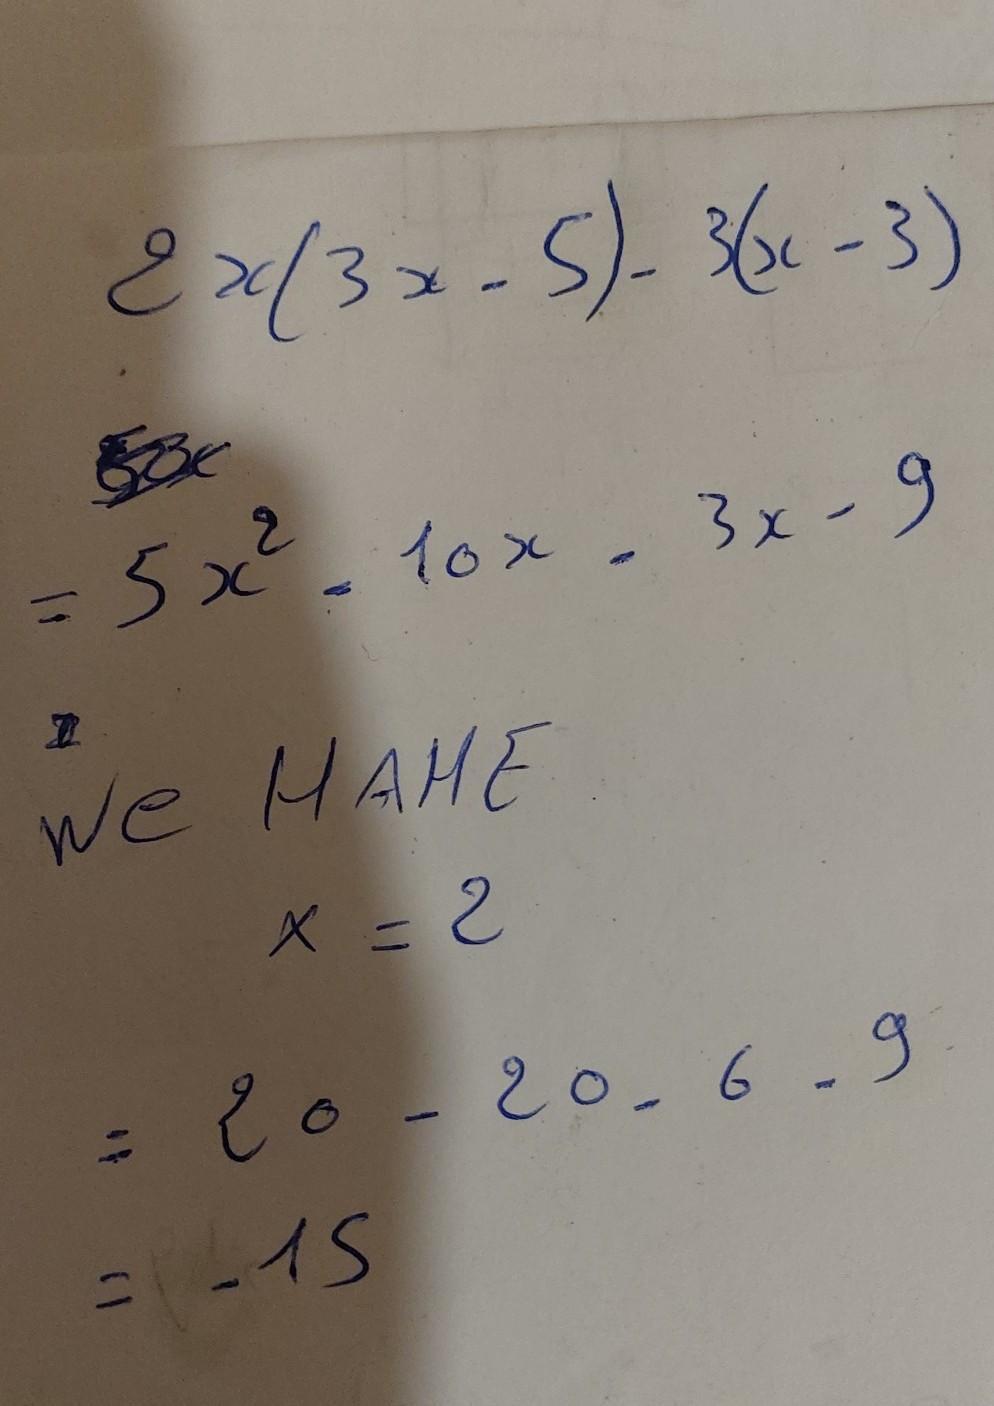 2x(3x - 5) - 3(x - 3)
= 5x² - 10x - 3x - 9
We HAHE
x = 2
= 20 - 20 - 6 - 9
= - 15